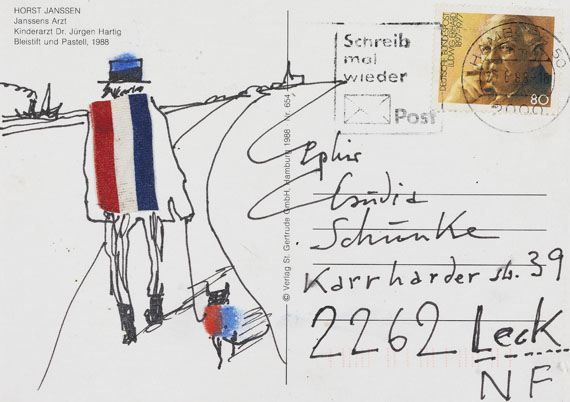 HORST JANSSEN
Janssens Arzt
Kinderarzt Dr. Jürgen Hartig
Bleistift und Pastell, 1988
© Verlag St. Gertrude GmbH, Hamburg 1988 Nr. 654
Schreib
mal
wieder
Post
DEUTSCHE BUNDESPOST
LUDWIG ERHARD
1897-1977
80
HAMBURG 50
2000
Claudia
Schünke
Karrharder str. 39
2262 Leck
NF